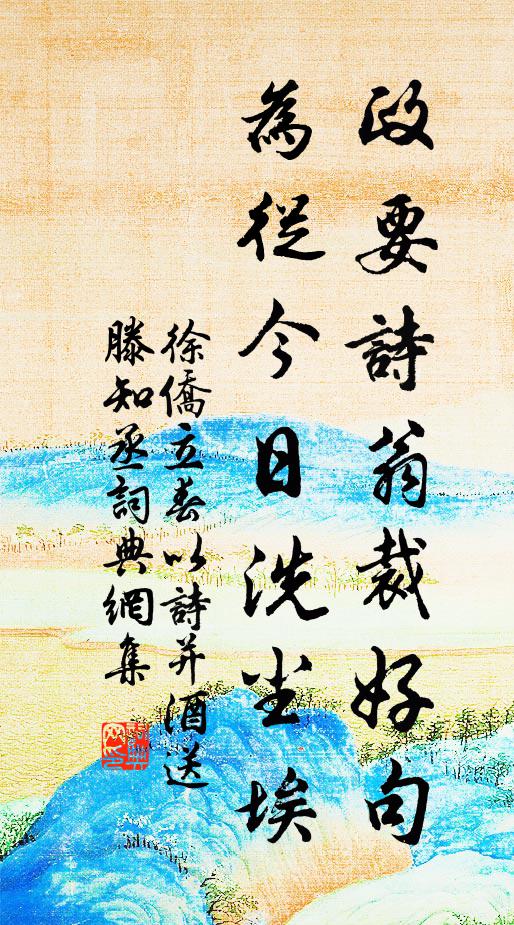 政要詩翁裁好句
為從今日洗尘埃
徐僑立春以詩并酒送
滕知丞詞典網集